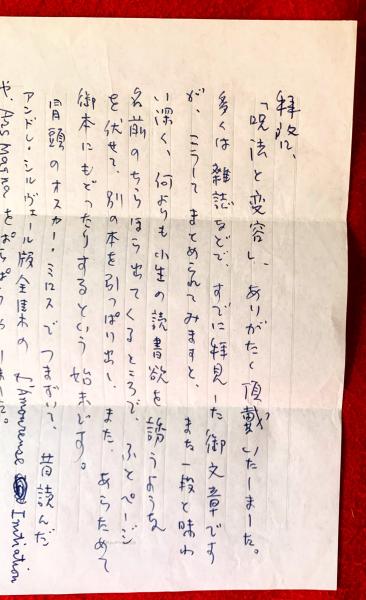 拝啓、
「呪法と変容」、ありがたく頂戴いたしました。
多くは雑誌などで、すでに拝見した御文章です
が、こうしてまとめられてみますと、また一段と味わ
い深く、何よりも小生の読書欲を誘うような
名前のちらほら出てくるところで、ふとページ
を伏せて、別の本を引っぱり出し、また、あらためて
御本にもどったりするという始末です。
冒頭のオスカー・ミロスでつまずいて、昔読んだ
アンドレ・シルヴェール版全集の L'Amoureuse Initiation
や、Ars Magna をぱらぱら